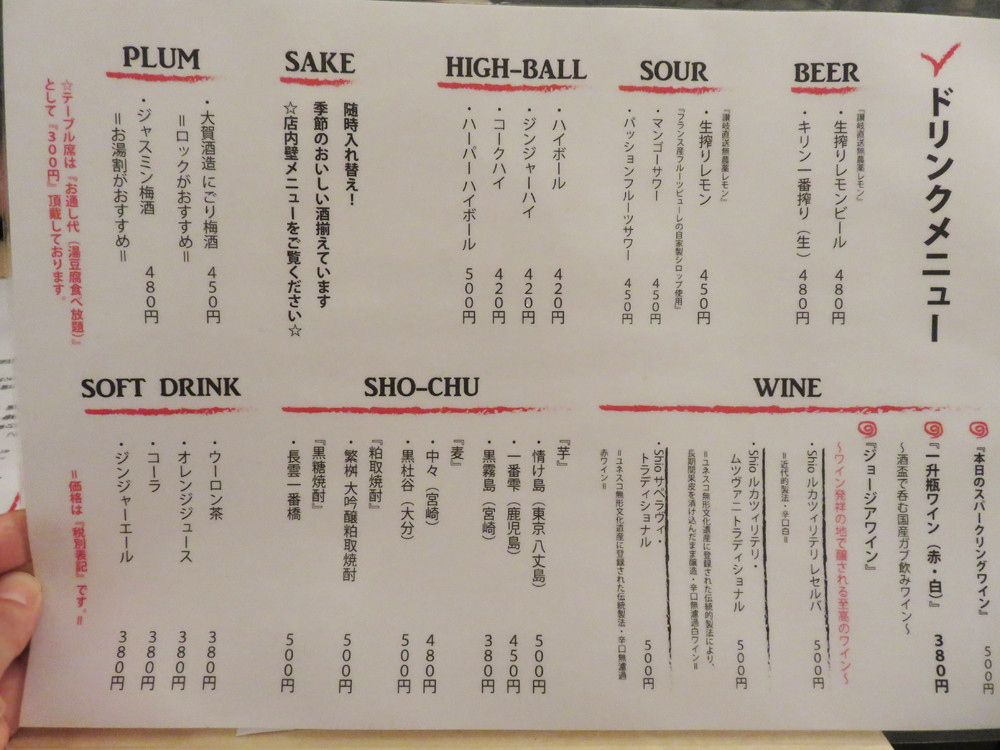 ドリンクメニュー
BEER
『讃岐直送無農薬レモン』
・生搾りレモンビール 480円
・キリン一番搾り(生) 480円
SOUR
『讃岐直送無農薬レモン』
・生搾りレモン 450円
『フランス産フルーツピューレの自家製シロップ使用』
・マンゴーサワー 450円
・パッションフルーツサワー 450円
HIGH-BALL
・ハイボール 420円
・ジンジャーハイ 420円
・コークハイ 420円
・ハーパーハイボール 500円
SAKE
随時入れ替え！
季節のおいしい酒揃えています
☆店内壁メニューをご覧ください☆
PLUM
・大賀酒造 にごり梅酒 450円
＝ロックがおすすめ＝
・ジャスミン梅酒 480円
＝お湯割がおすすめ＝
☆テーブル席は『お通し代（湯豆腐食べ放題）』
として『300円』頂戴しております。
WINE
『本日のスパークリングワイン』 500円
『一升瓶ワイン（赤・白）』 380円
～酒盃で呑む国産ガブ飲みワイン～
『ジョージアワイン』
～ワイン発祥の地で醸される至高のワイン～
・Shio ルカツィリテリレセルバ 500円
＝近代的製法・辛口白＝
・Shio ルカツィリテリ・
ムツヴァニトラディショナル 500円
＝ユネスコ無形文化遺産に登録された伝統的製法により、
長期間果皮を漬け込んだまま醸造・辛口無濾過白ワイン＝
・Shio サペラヴィ・
トラディショナル 500円
＝ユネスコ無形文化遺産に登録された伝統製法・辛口無濾過
赤ワイン＝
SHO-CHU
『芋』
・情け島（東京 八丈島） 500円
・一番雫（鹿児島） 450円
・黒霧島（宮崎） 380円
『麦』
・中々（宮崎） 480円
・黒杜谷（大分） 500円
『粕取焼酎』
・繁桝 大吟醸粕取焼酎 500円
『黒糖焼酎』
・長雲一番橋 500円
SOFT DRINK
・ウーロン茶 380円
・オレンジジュース 380円
・コーラ 380円
・ジンジャーエール 380円
＝価格は『税別表記』です。＝